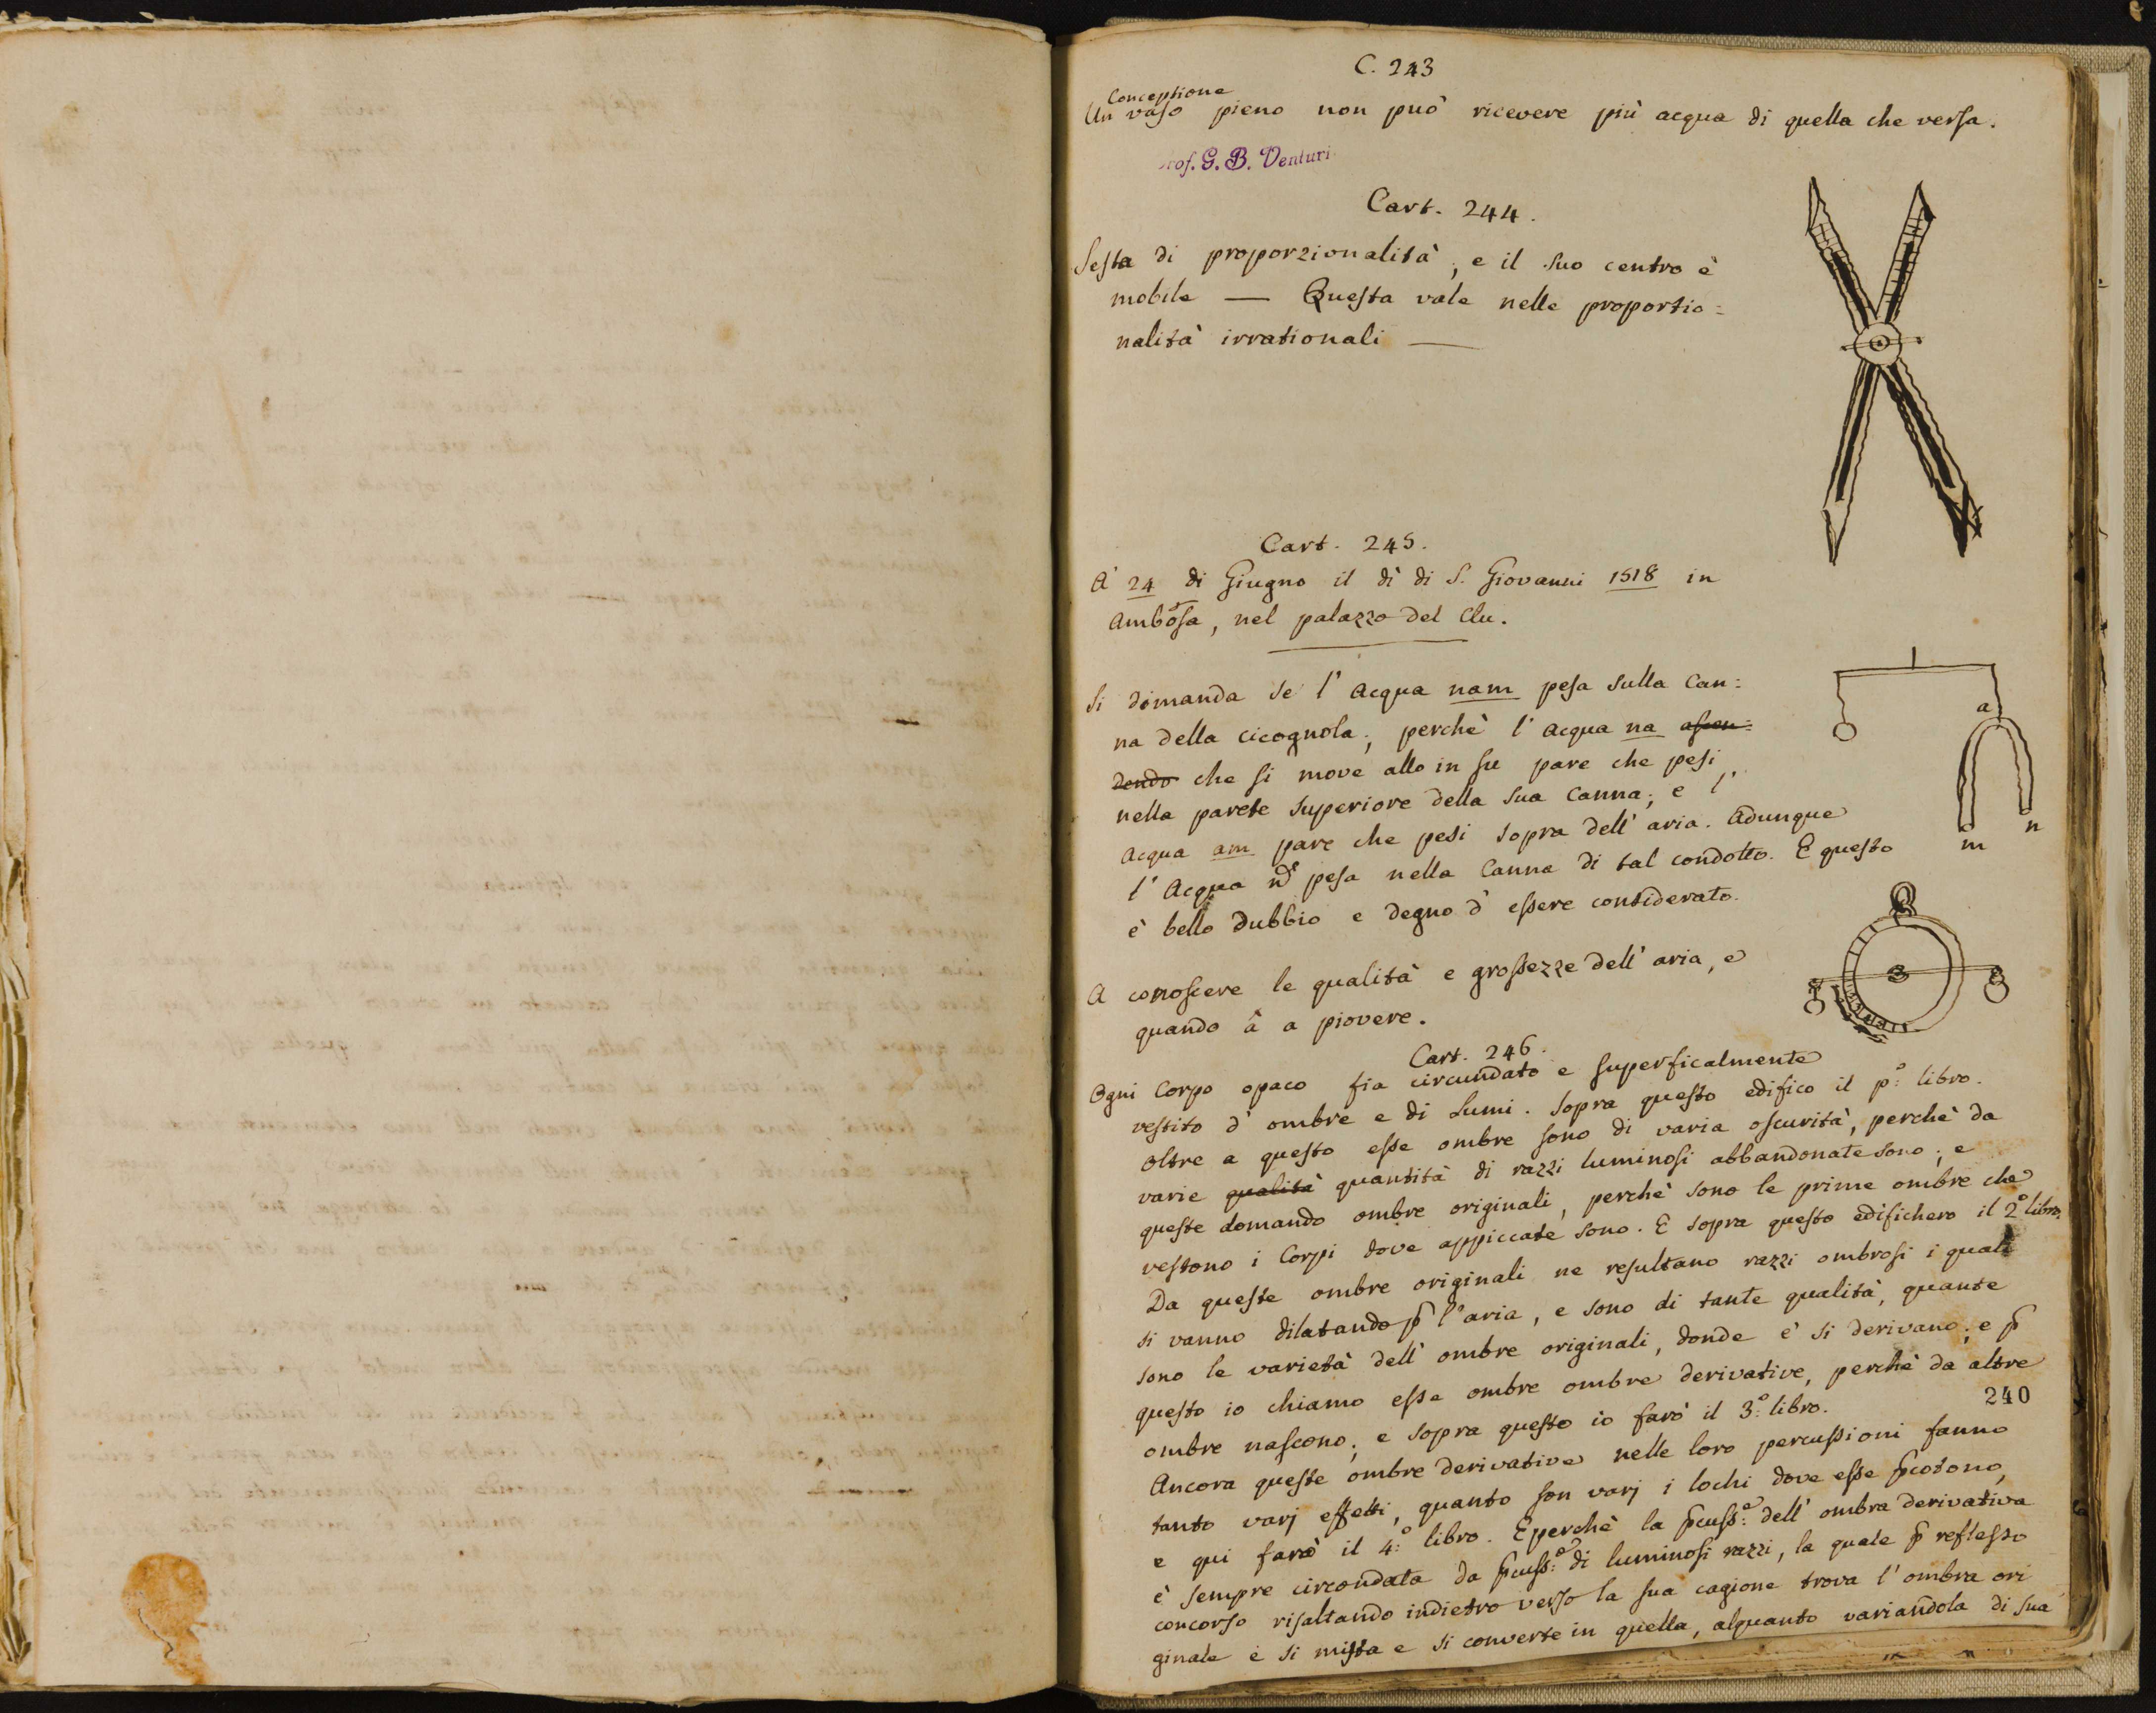 C. 243
Conceptione
Un vaso pieno non può ricevere più acqua di quella che versa.
Prof. G. B. Venturi
Cart. 244.
Sesta di proporzionalità, e il suo centro è
mobile — Questa vale nelle proportio=
nalità irrationali —
Cart. 245.
A 24 di Giugno il dì di S. Giovanni 1518 in
Ambosa, nel palazzo del Clu.
Si dimanda se l'acqua nam pesa sulla can=
na della cicognola; perchè l'acqua na ascen=
dendo che si move allo in su pare che pesi
nella parete superiore della sua canna; e l'
acqua am pare che pesi sopra dell'aria. Adunque
l'acqua pesa nella canna di tal condotto. E questo
è bello dubbio e degno d'essere considerato.
a
m
n
A conoscere le qualità e grossezze dell'aria, e
quando à a piovere.
Cart. 246.
Ogni corpo opaco fia circundato e superficalmente
vestito d'ombre e di lumi. Sopra questo edifico il p.º libro.
Oltre a questo esse ombre sono di varia oscurità, perchè da
varie qualità quantità di razzi luminosi abbandonate sono; e
queste domando ombre originali, perchè sono le prime ombre che
vestono i corpi dove appiccate sono. E sopra questo edifichero il 2º libro.
Da queste ombre originali ne resultano razzi ombrosi i quali
si vanno dilatando p̄ l'aria, e sono di tante qualità, quante
sono le varietà dell'ombre originali, donde e' si derivano; e p̄
questo io chiamo esse ombre ombre derivative, perchè da altre
ombre nascono; e sopra questo io farò il 3.º libro.
240
Ancora queste ombre derivative nelle loro percussioni fanno
tanto varj effetti, quanto son varj i lochi dove esse p̄cotono,
e qui farò il 4.º libro. E perchè la p̄cuss.e dell'ombra derivativa
è sempre circondata da p̄cuss.e di luminosi razzi, la quale p̄ reflesso
concorso risaltando indietro verso la sua cagione trova l'ombra ori
ginale e si mista e si converte in quella, alquanto variandola di sua